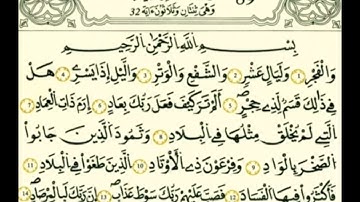 وَهِيَ ثِنْتَانِ وَثَلَاثُونَ ءَايَة 32
بِسْمِ اللَّهِ الرَّحْمَٰنِ الرَّحِيمِ
وَالْفَجْرِ ۝١ وَلَيَالٍ عَشْرٍ ۝٢ وَالشَّفْعِ وَالْوَتْرِ ۝٣ وَالَّيْلِ إِذَا يَسْرِ ۝٤ هَلْ
فِي ذَٰلِكَ قَسَمٌ لِّذِي حِجْرٍ ۝٥ أَلَمْ تَرَ كَيْفَ فَعَلَ رَبُّكَ بِعَادٍ ۝٦ إِرَمَ ذَاتِ الْعِمَادِ ۝٧
الَّتِي لَمْ يُخْلَقْ مِثْلُهَا فِي الْبِلَادِ ۝٨ وَثَمُودَ الَّذِينَ جَابُوا
الصَّخْرَ بِالْوَادِ ۝٩ وَفِرْعَوْنَ ذِي الْأَوْتَادِ ۝١٠ الَّذِينَ طَغَوْا فِي الْبِلَادِ ۝١١
فَأَكْثَرُوا فِيهَا الْفَسَادَ ۝١٢ فَصَبَّ عَلَيْهِمْ رَبُّكَ سَوْطَ عَذَابٍ ۝١٣ إِنَّ رَبَّكَ لَبِالْمِرْصَادِ ۝١٤